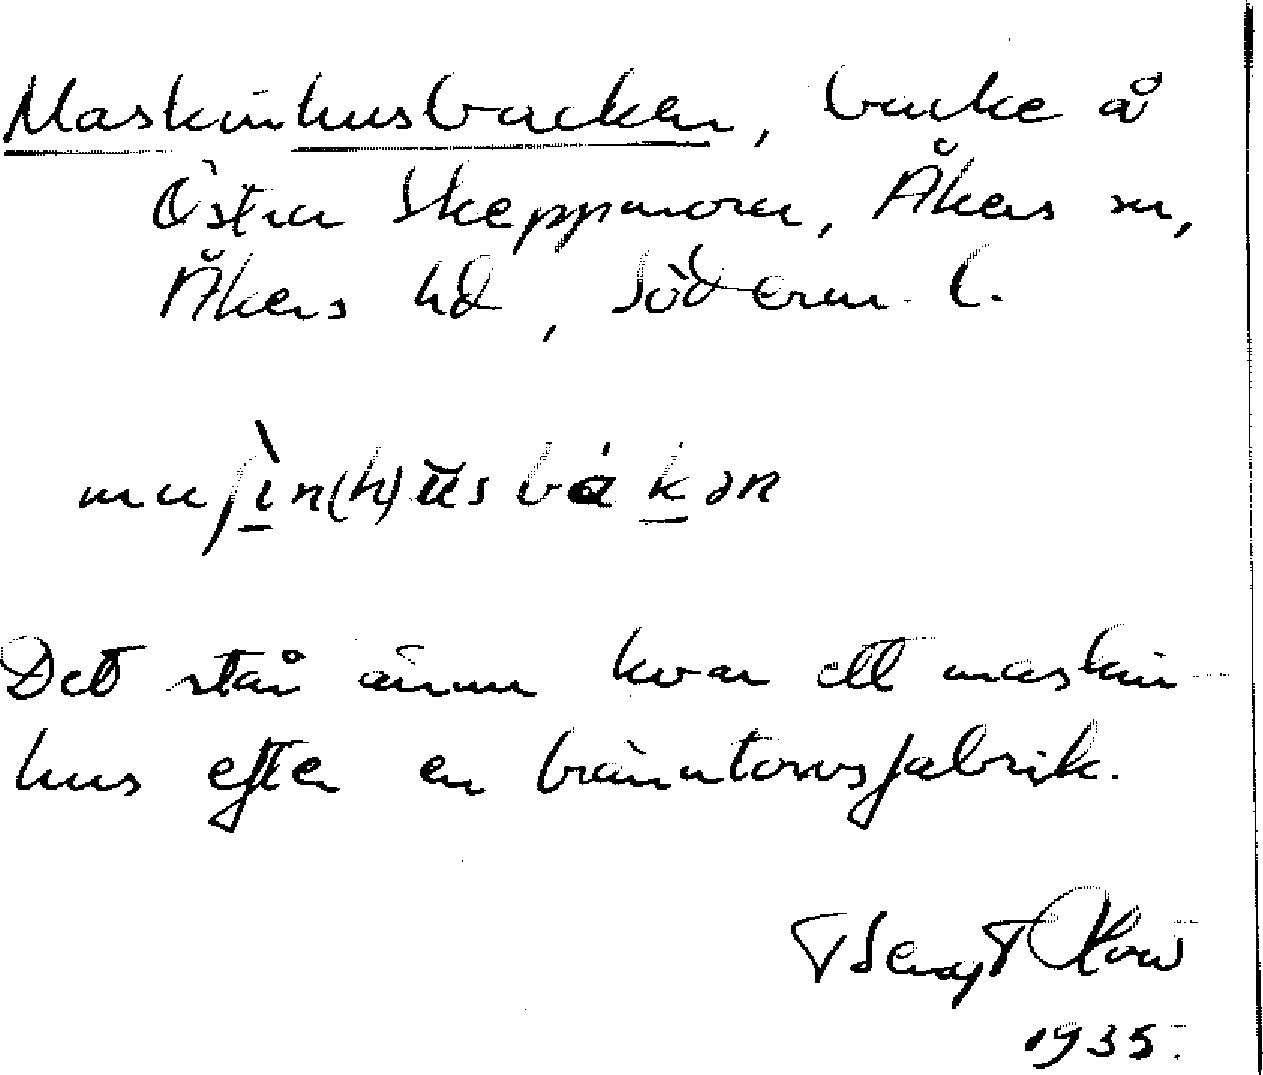 Maskinhusbacken, backe å
Östra Skeppmora, Åkers sn,
Åkers hd, Söderm. l.
maʃìn(h)ŭsbákən
Det står ännu kvar ett maskin-
hus efter en bränntorvsfabrik.
Bengt
1935.